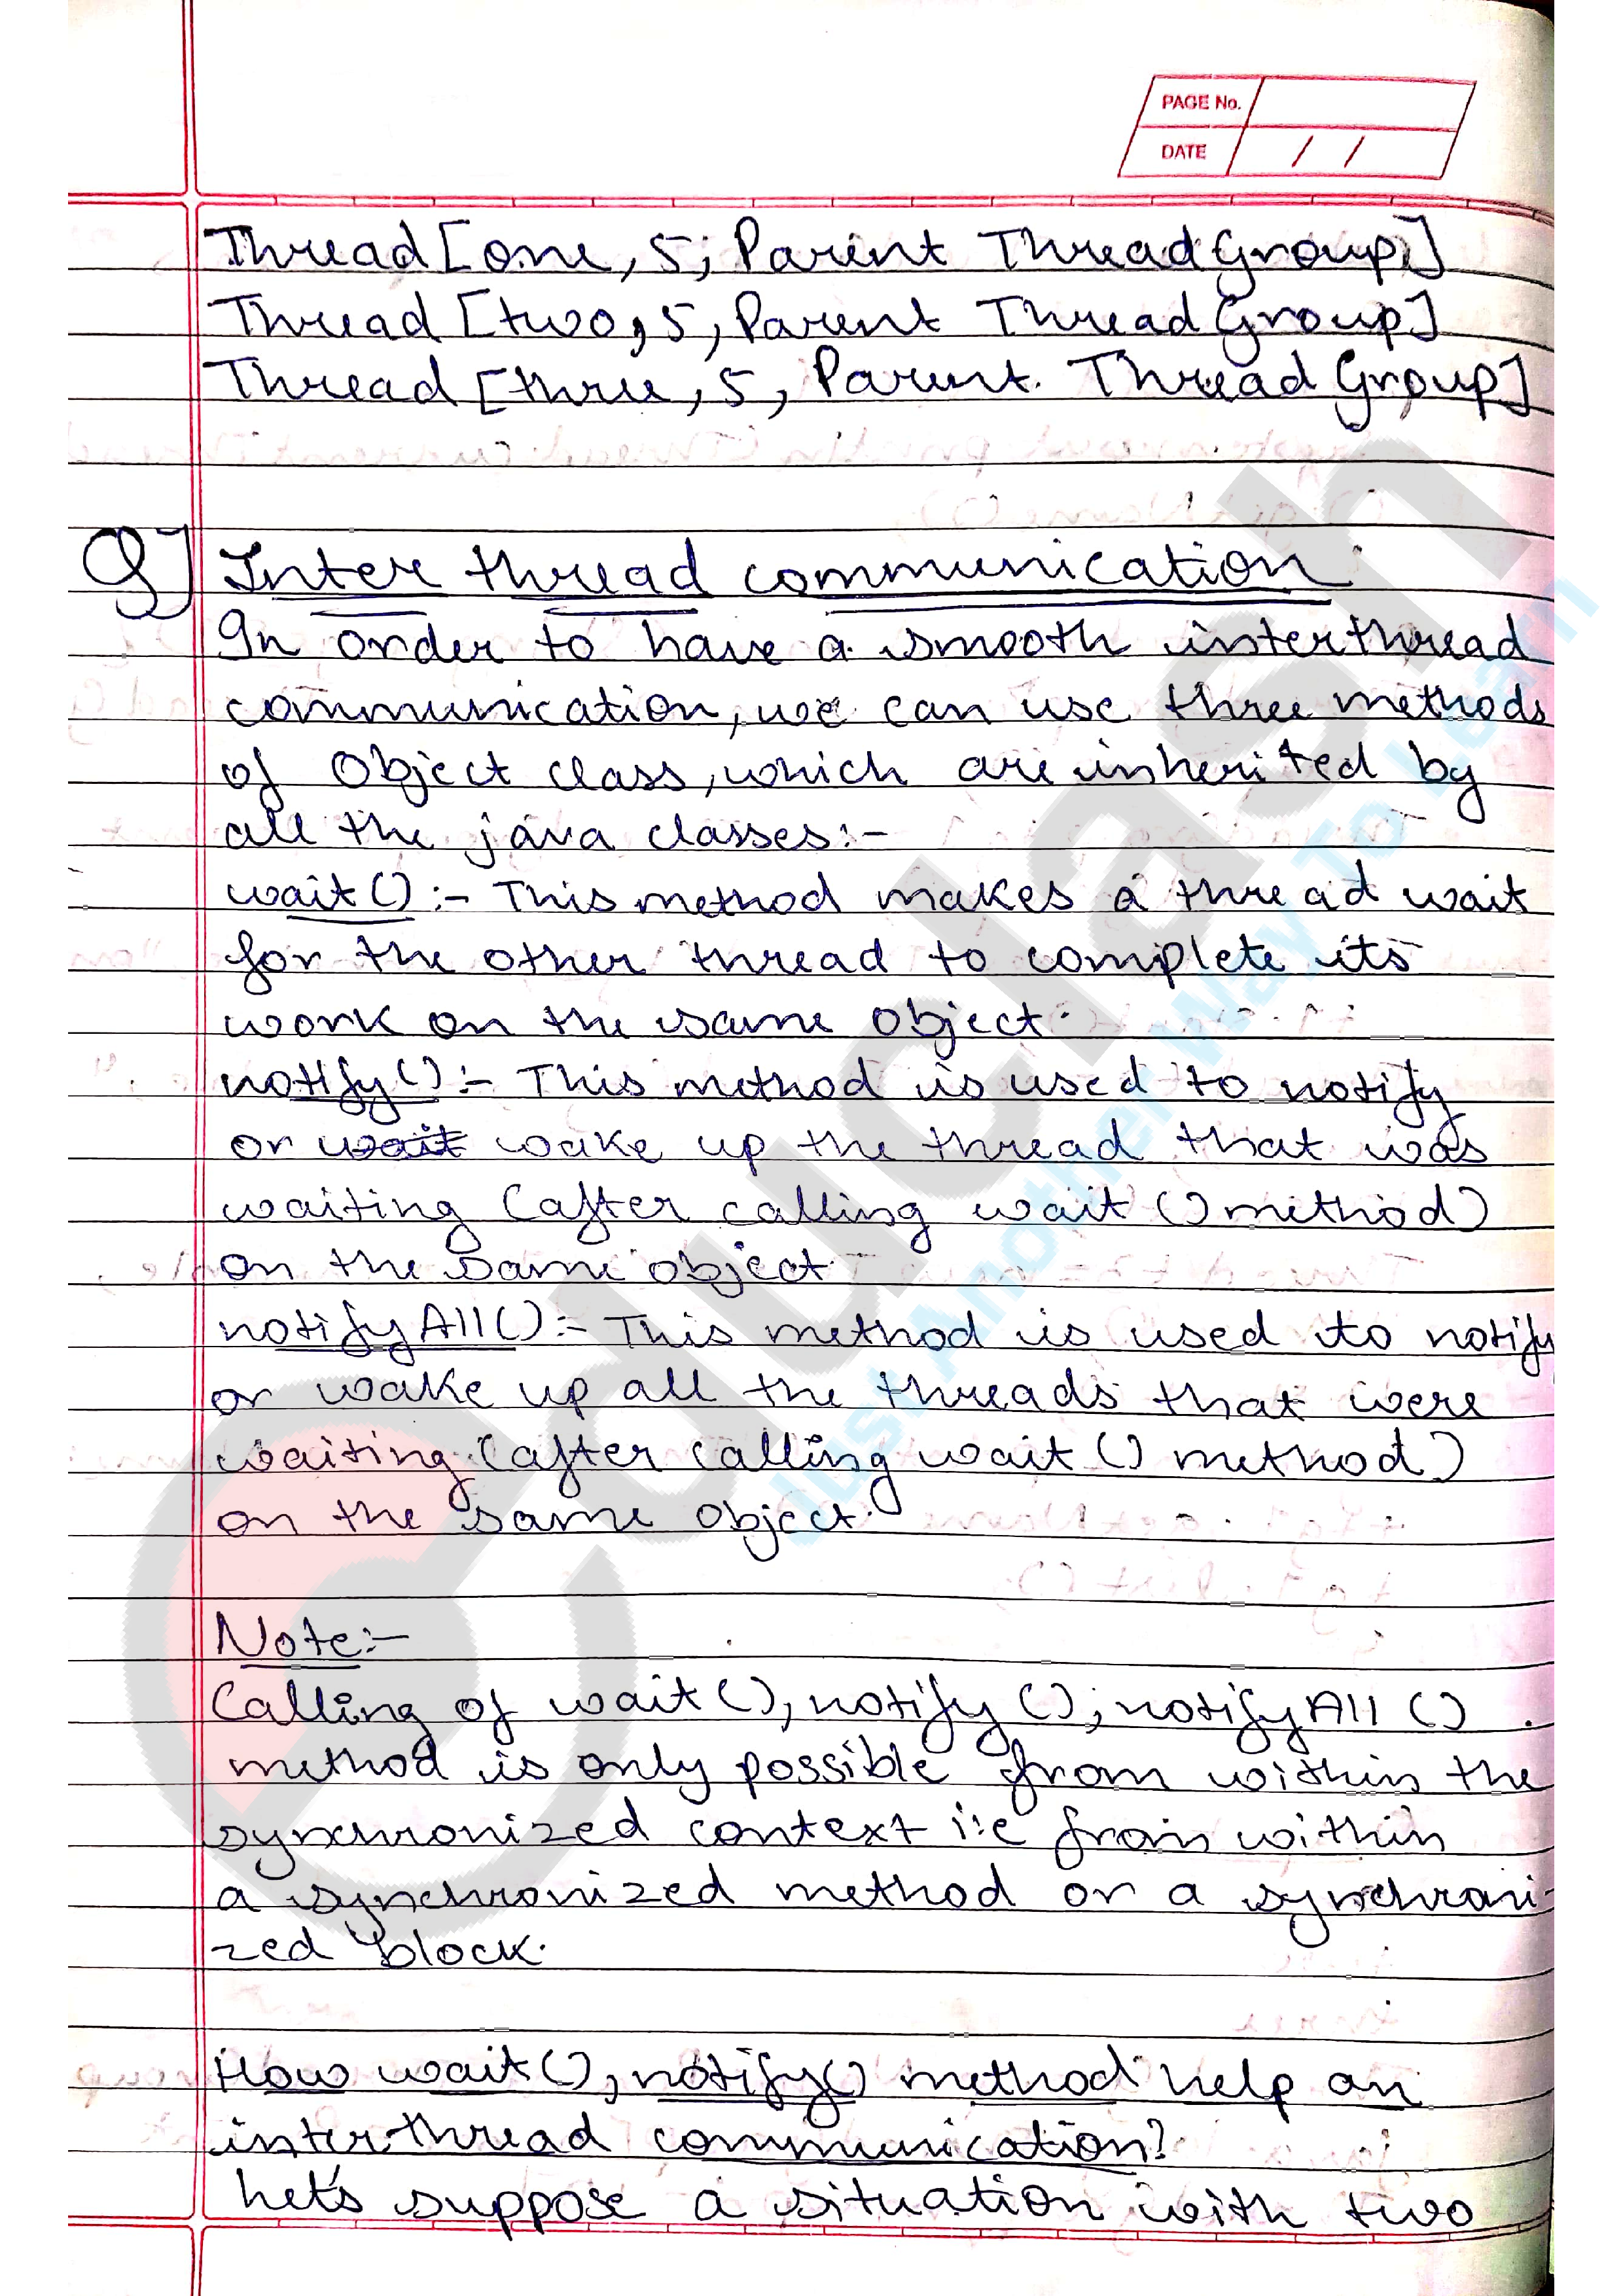 PAGE No.
DATE / /
Thread [one, 5, Parent Thread Group]
Thread [two, 5, Parent Thread Group]
Thread [three, 5, Parent Thread Group]
Q] Inter thread communication
In order to have a smooth interthread
communication, we can use three methods
of Object class, which are inherited by
all the java classes:-
wait() :- This method makes a thread wait
for the other thread to complete its
work on the same object.
notify() :- This method is used to notify
or wait wake up the thread that was
waiting (after calling wait() method)
on the same object
notifyAll() :- This method is used to notify
or wake up all the threads that were
waiting (after calling wait() method)
on the same object.
Note:-
Calling of wait(), notify(), notifyAll()
method is only possible from within the
synchronized context i.e from within
a synchronized method or a synchroni-
zed block.
How wait(), notify() method help an
inter-thread communication?
Let's suppose a situation with two
educlash
Just Another Way To Learn